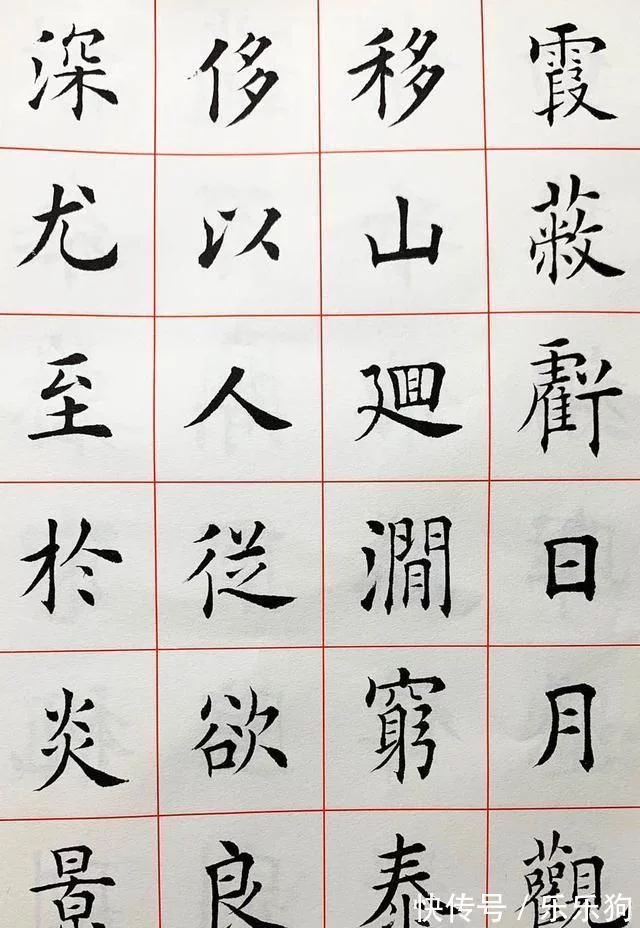 霞蔽虧日月觀
移山廻澗窮泰
侈以人從欲良
深尤至於炎景
快传号 / 乐乐狗